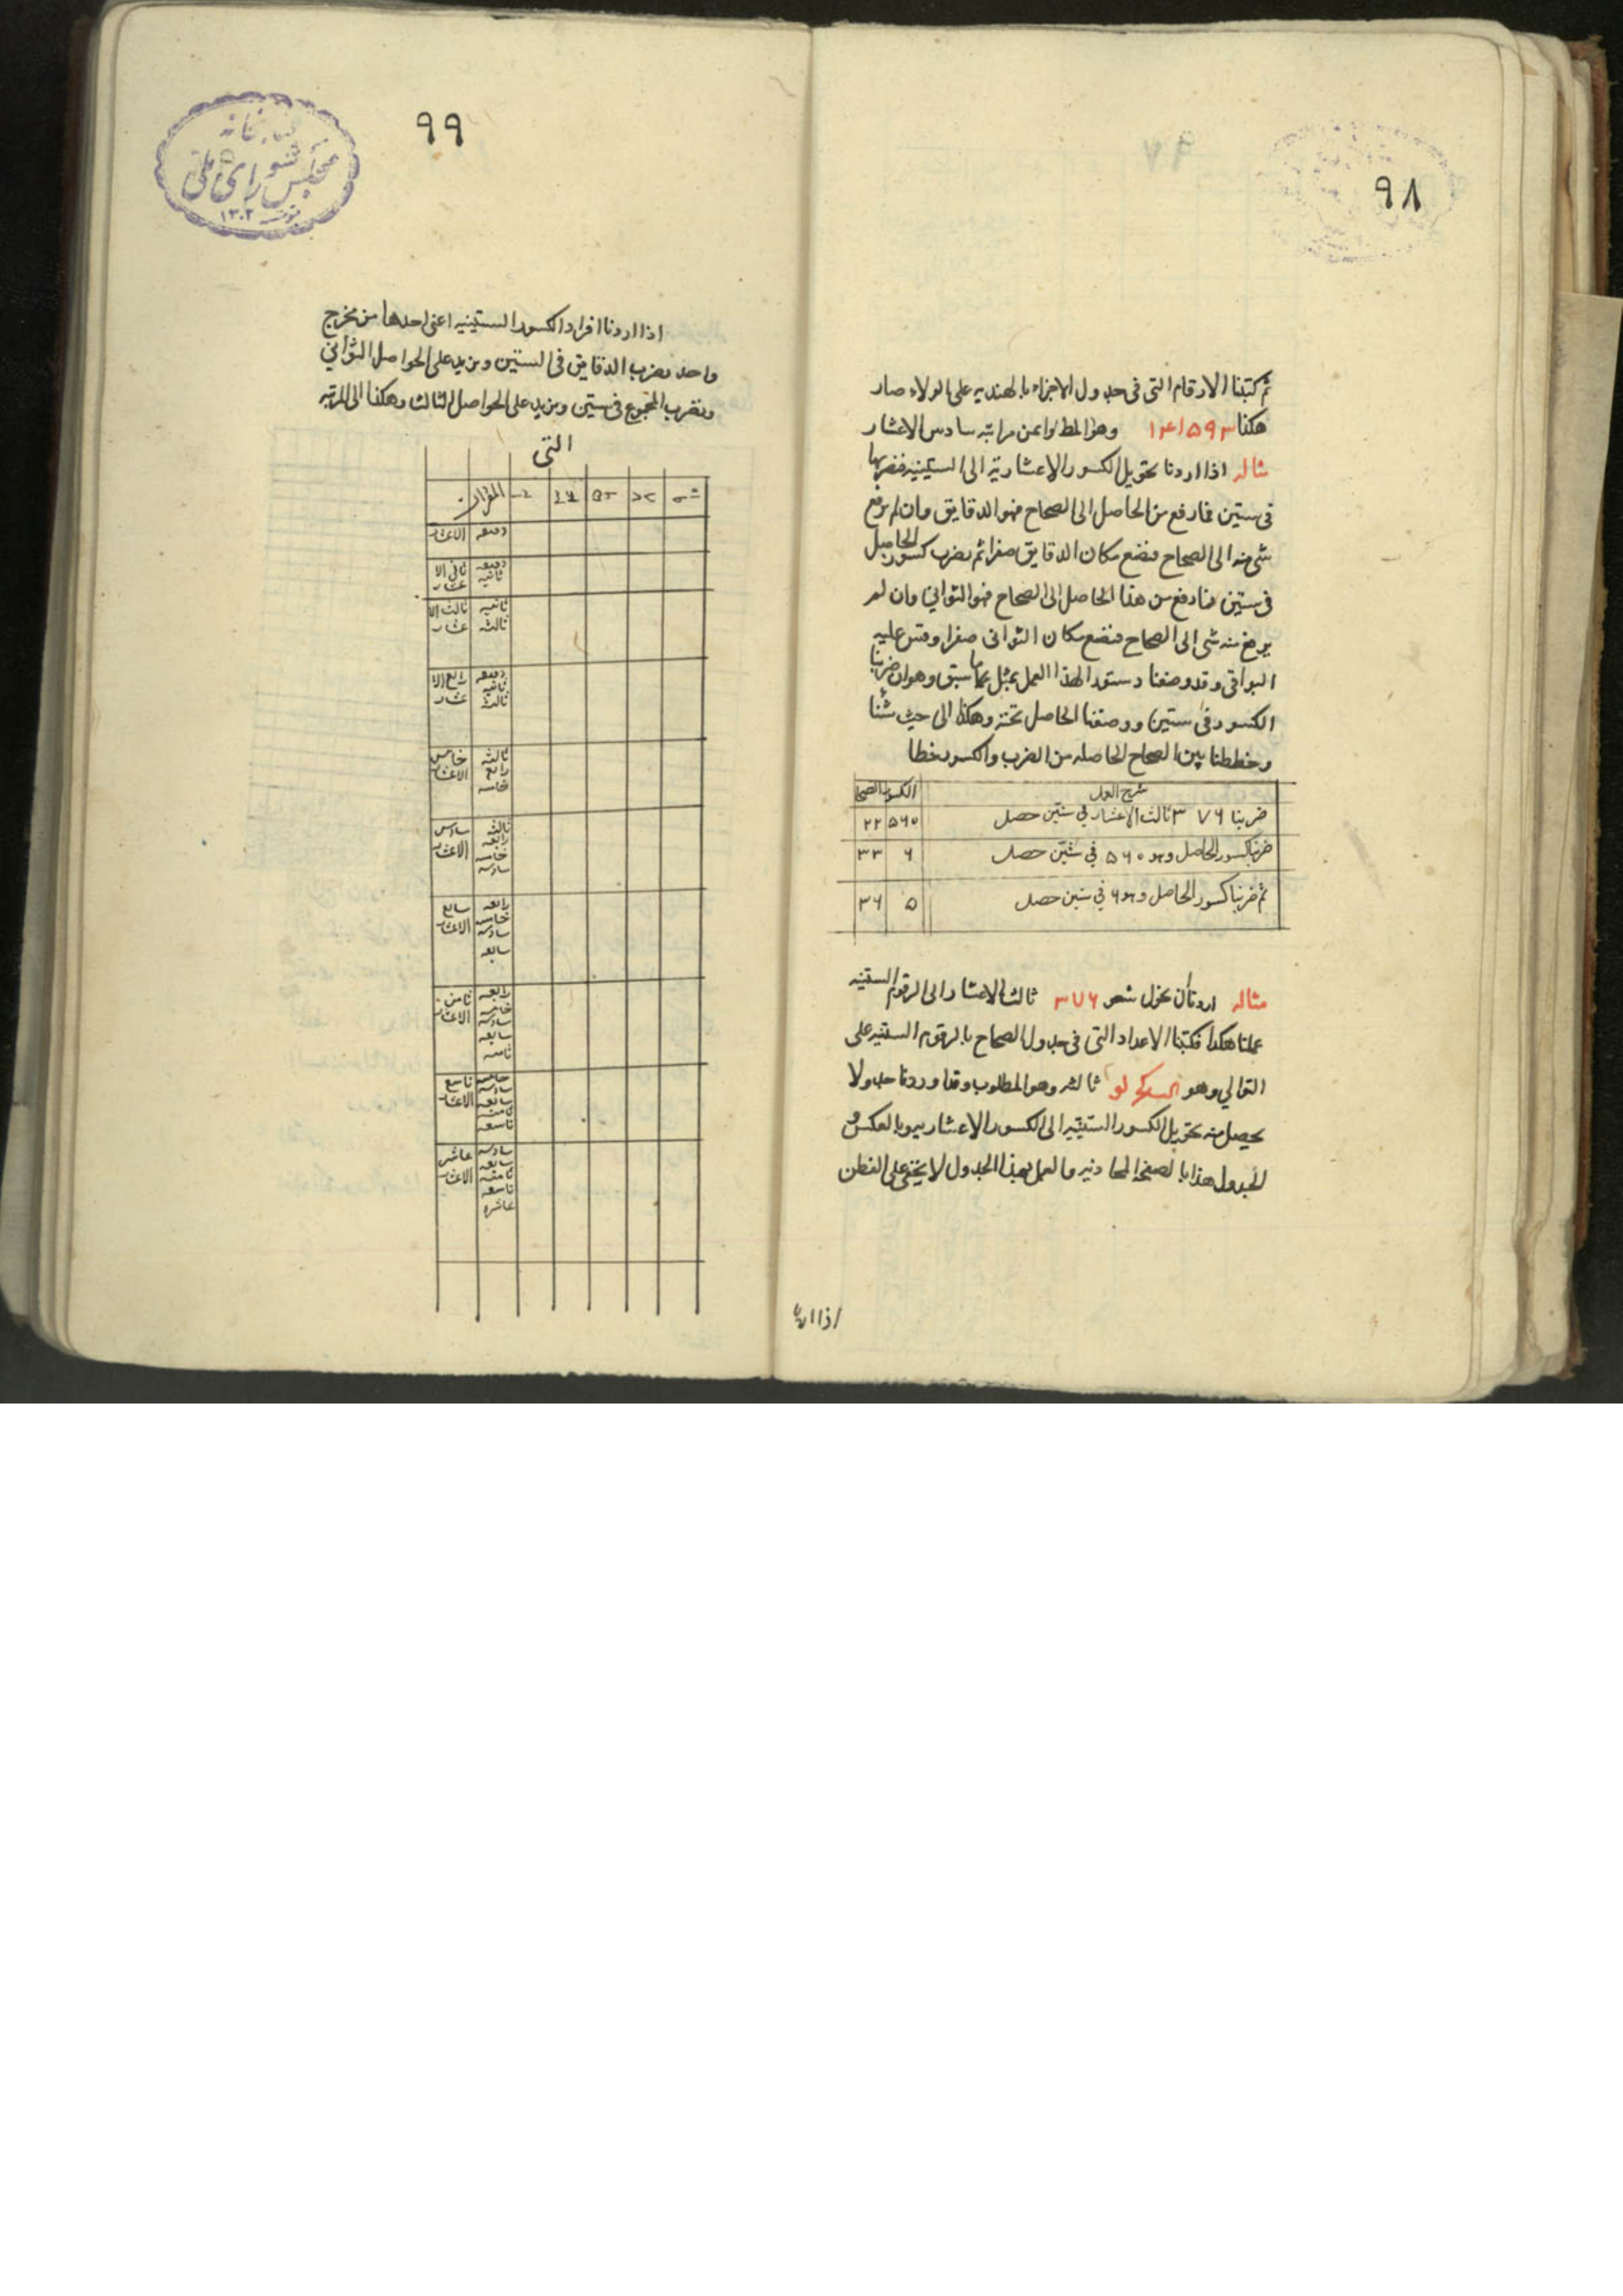 ٩٨
ثم كتبنا الارقام التى فى جدول الاجزاء بالهنديه على الولاء صار
هكذا ١٤١٥٩٣ وهو المط وا عن مراتبه سادس الاعشار
مثاله اذا اردنا تحويل الكسور الاعشاريه الى الستينيه فنضربها
فى ستين فما رفع من الحاصل الى الصحاح فهو الدقايق وان لم يرفع
شى منه الى الصحاح فنضع مكان الدقايق صفرا ثم نضرب كسور الحاصل
فى ستين فما رفع من هذا الحاصل الى الصحاح فهو الثوانى وان لم
يرفع منه شى الى الصحاح فنضع مكان الثوانى صفرا وقس عليه
البواقى وقد وضعنا دستورا لهذا العمل بمثل ما سبق وهو ان ضربنا
الكسور فى ستين ووضعنا الحاصل تحته وهكذا الى حيث شئنا
وخططنا بين الصحاح الحاصله من الضرب والكسور خطا
شرح العمل الكسور الصحا
ضربنا ٣٧٦ ثالث الاعشار فى ستين حصل ٥٦٠ ٢٢
ضربنا كسور الحاصل وهو ٥٦٠ فى ستين حصل ٦ ٣٣
ثم ضربنا كسور الحاصل وهو ٦ فى ستين حصل ٥ ٣٦
مثاله اردنا ان نحول ٣٧٦ ثالث الاعشار الى الرقوم الستينيه
عملنا هكذا فكتبنا الاعداد التى فى جدول الصحاح بالرقوم الستينيه على
التوالي وهو لو ثالثه وهو المطلوب وقد اوردنا جدولا
يحصل منه تحويل الكسور الستينيه الى الكسور الاعشاريه وبالعكس و
الجدول هذا بالصفحه المحاذيه والعمل بهذا الجدول لا يخفى على الفطن
اذا اردنا
٩٩
كتابخانه
مجلس شوراى ملى
١٣٠٢
اذا اردنا افراد الكسور الستينيه اعنى احدها من مخرج
واحد نضرب الدقايق فى الستين ونزيد على الحواصل الثوانى
ونضرب المجموع فى ستين ونزيد على الحواصل الثالث وهكذا الى المرتبه
التى
دقيقه الاعشار
دقيقه ثانيه ثانى الا عشار
ثانيه ثالثه ثالث الا عشار
دقيقه ثانيه ثالثه رابع الا عشار
ثالثه رابع خامسه خامس الاعشار
ثالثه رابعه خامسه سادسه سادس الاعشار
رابعه خامسه سادسه سابعه سابع الاعشار
رابعه خامسه سادسه سابعه ثامنه ثامن الاعشار
خامسه سادسه سابعه ثامنه تاسعه تاسع الاعشار
سادسه سابعه ثامنه تاسعه عاشره عاشر الاعشار